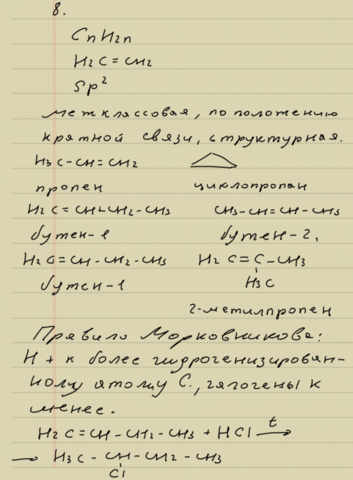 8.
CnH2n
H2C=CH2
Sp²
межклассовая, по положению
кратной связи, структурная.
H3C-CH=CH2
пропен циклопропан
H2C=CH-CH2-CH3 CH3-CH=CH-CH3
бутен-1 бутен-2,
H2C=CH-CH2-CH3 H2C=C-CH3
H3C
бутен-1
2-метилпропен
Правило Морковникова:
H+ к более гидрогенизирован-
ному атому C., галогены к
менее.
H2C=CH-CH2-CH3+HCl t→
→ H3C-CH-CH2-CH3
Cl